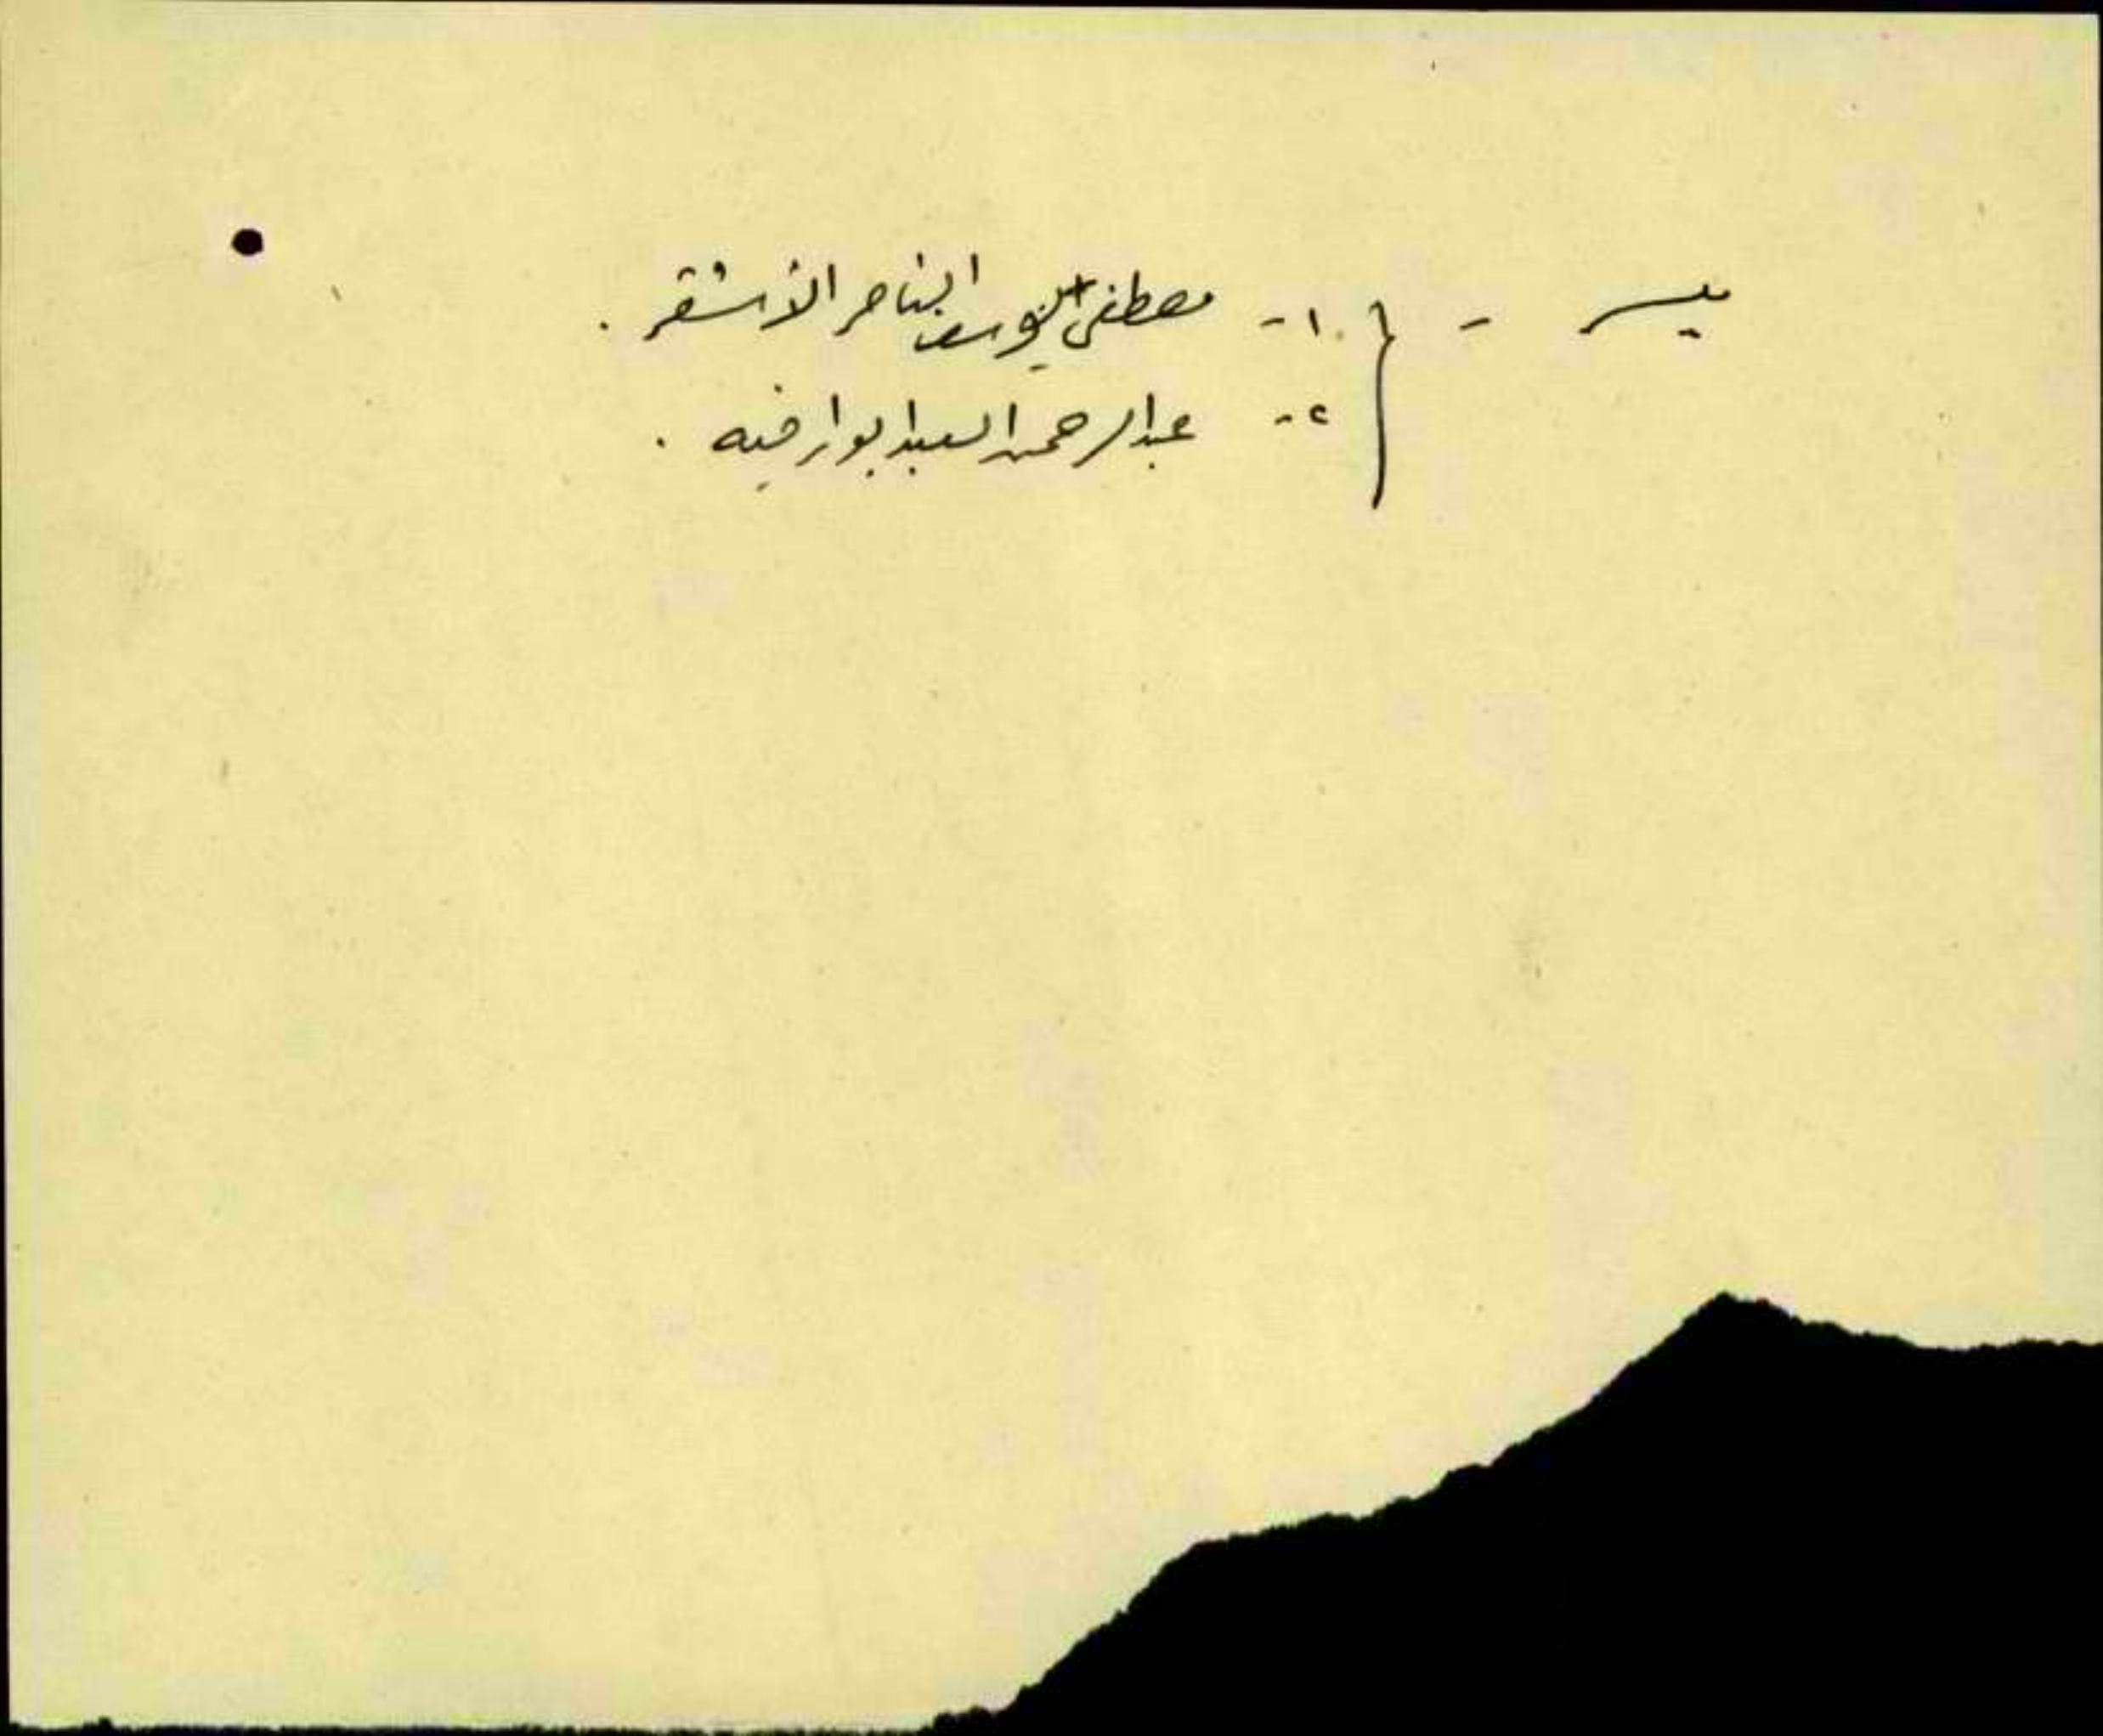 ميسر - { ١- مصطفى اليوسف الناصر الأشقر .
٢- عبد الرحمن العبد ابو ارضيه .